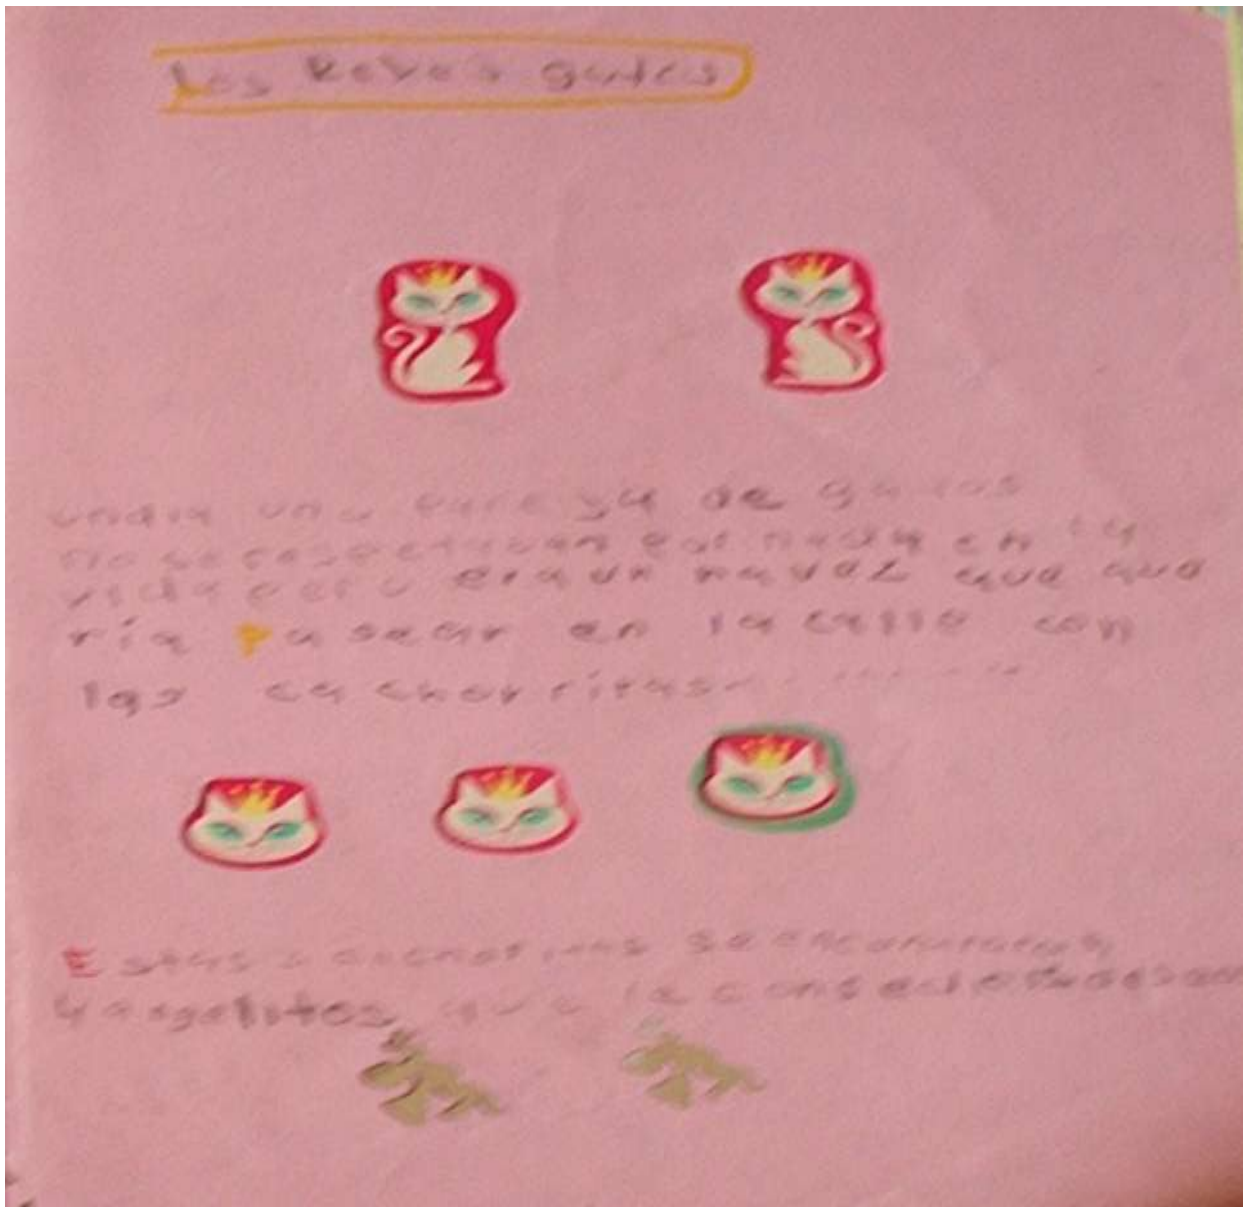 Los Reyes gatos
undia una pare ja de gatos
no se respetavan por nada en la
vida pero eraun navez que que
ria pasear en la calle con
las cachorritas
Estas se encontraron
4 angelitos que le